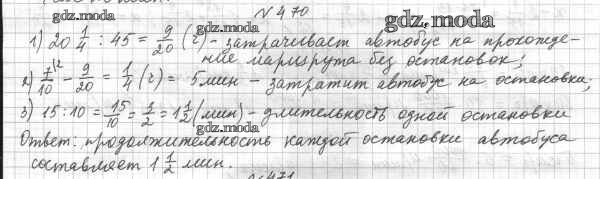 №470
gdz.moda gdz.moda
1) 20 1/4 : 45 = 9/20 (ч) - затрачивает автобус на прохожде-
gdz.moda ние маршрута без остановок;
2) 7/10 |2 - 9/20 = 1/4 (ч) = 5 мин - затратит автобус на остановка;
3) 15 : 10 = 15/10 = 3/2 = 1 1/2 (мин) - длительность одной остановки
gdz.moda
Ответ: продолжительность каждой остановки автобуса
составляет 1 1/2 мин.
№471